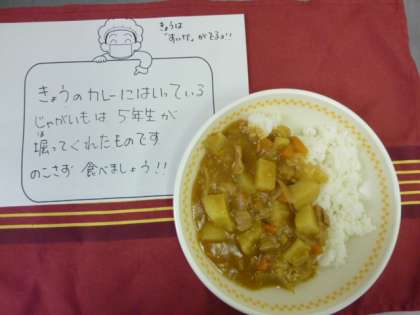 きょうは
「すいか」がでるよ!!
きょうのカレーにはいっている
じゃがいもは 5年生が
掘ってくれたものです
ほ
のこさず 食べましょう!!